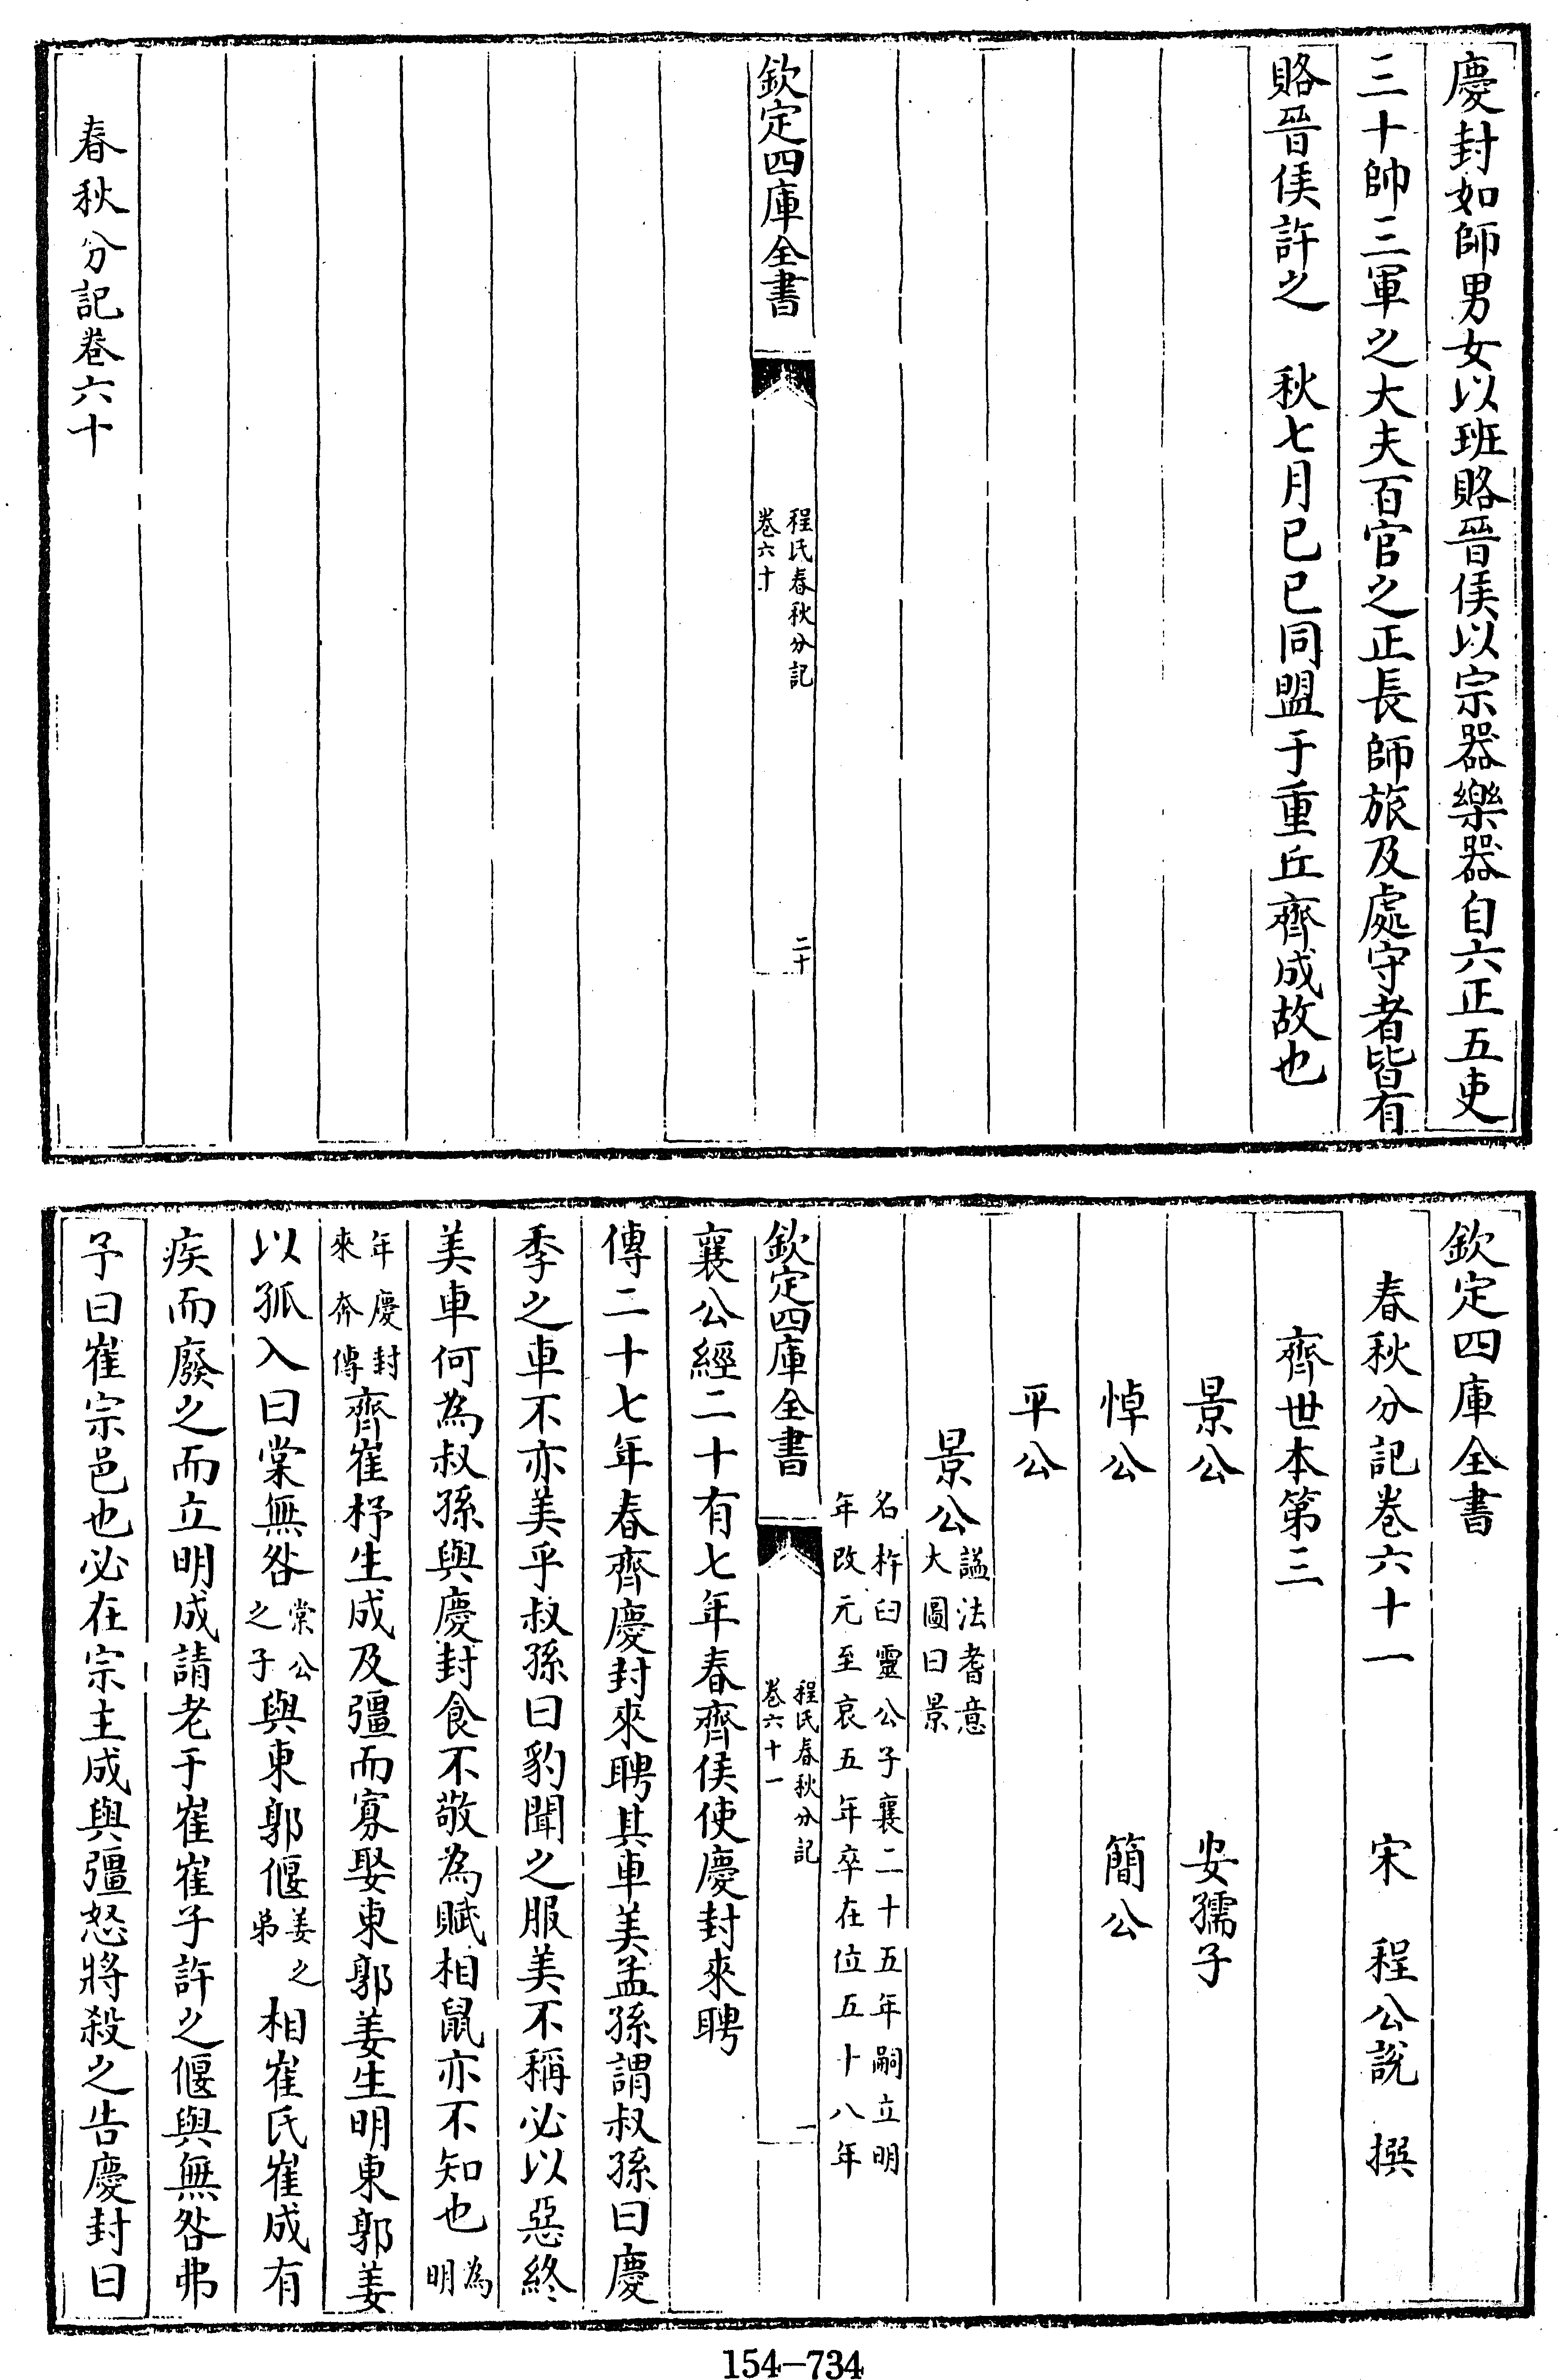 慶封如師男女以班賂晉侯以宗器樂器自六正五吏
三十帥三軍之大夫百官之正長師旅及處守者皆有
賂晉侯許之　秋七月已已同盟于重丘齊成故也
欽定四庫全書
程氏春秋分記
卷六十
二十
春秋分記卷六十
欽定四庫全書
春秋分記卷六十一　宋　程公說　撰
齊世本第三
景公　安孺子
悼公　簡公
平公
景公諡法耆意大圖曰景
名杵臼靈公子襄二十五年嗣立明
年改元至哀五年卒在位五十八年
欽定四庫全書
程氏春秋分記
卷六十一
一
襄公經二十有七年春齊侯使慶封來聘
傳二十七年春齊慶封來聘其車美孟孫謂叔孫曰慶
季之車不亦美乎叔孫曰豹聞之服美不稱必以惡終
美車何為叔孫與慶封食不敬為賦相鼠亦不知也為明
年慶封來奔傳齊崔杼生成及彊而寡娶東郭姜生明東郭姜
以孤入曰棠無咎棠公之子與東郭偃姜之弟相崔氏崔成有
疾而廢之而立明成請老于崔崔子許之偃與無咎弗
予曰崔宗邑也必在宗主成與彊怒將殺之告慶封曰
154-734